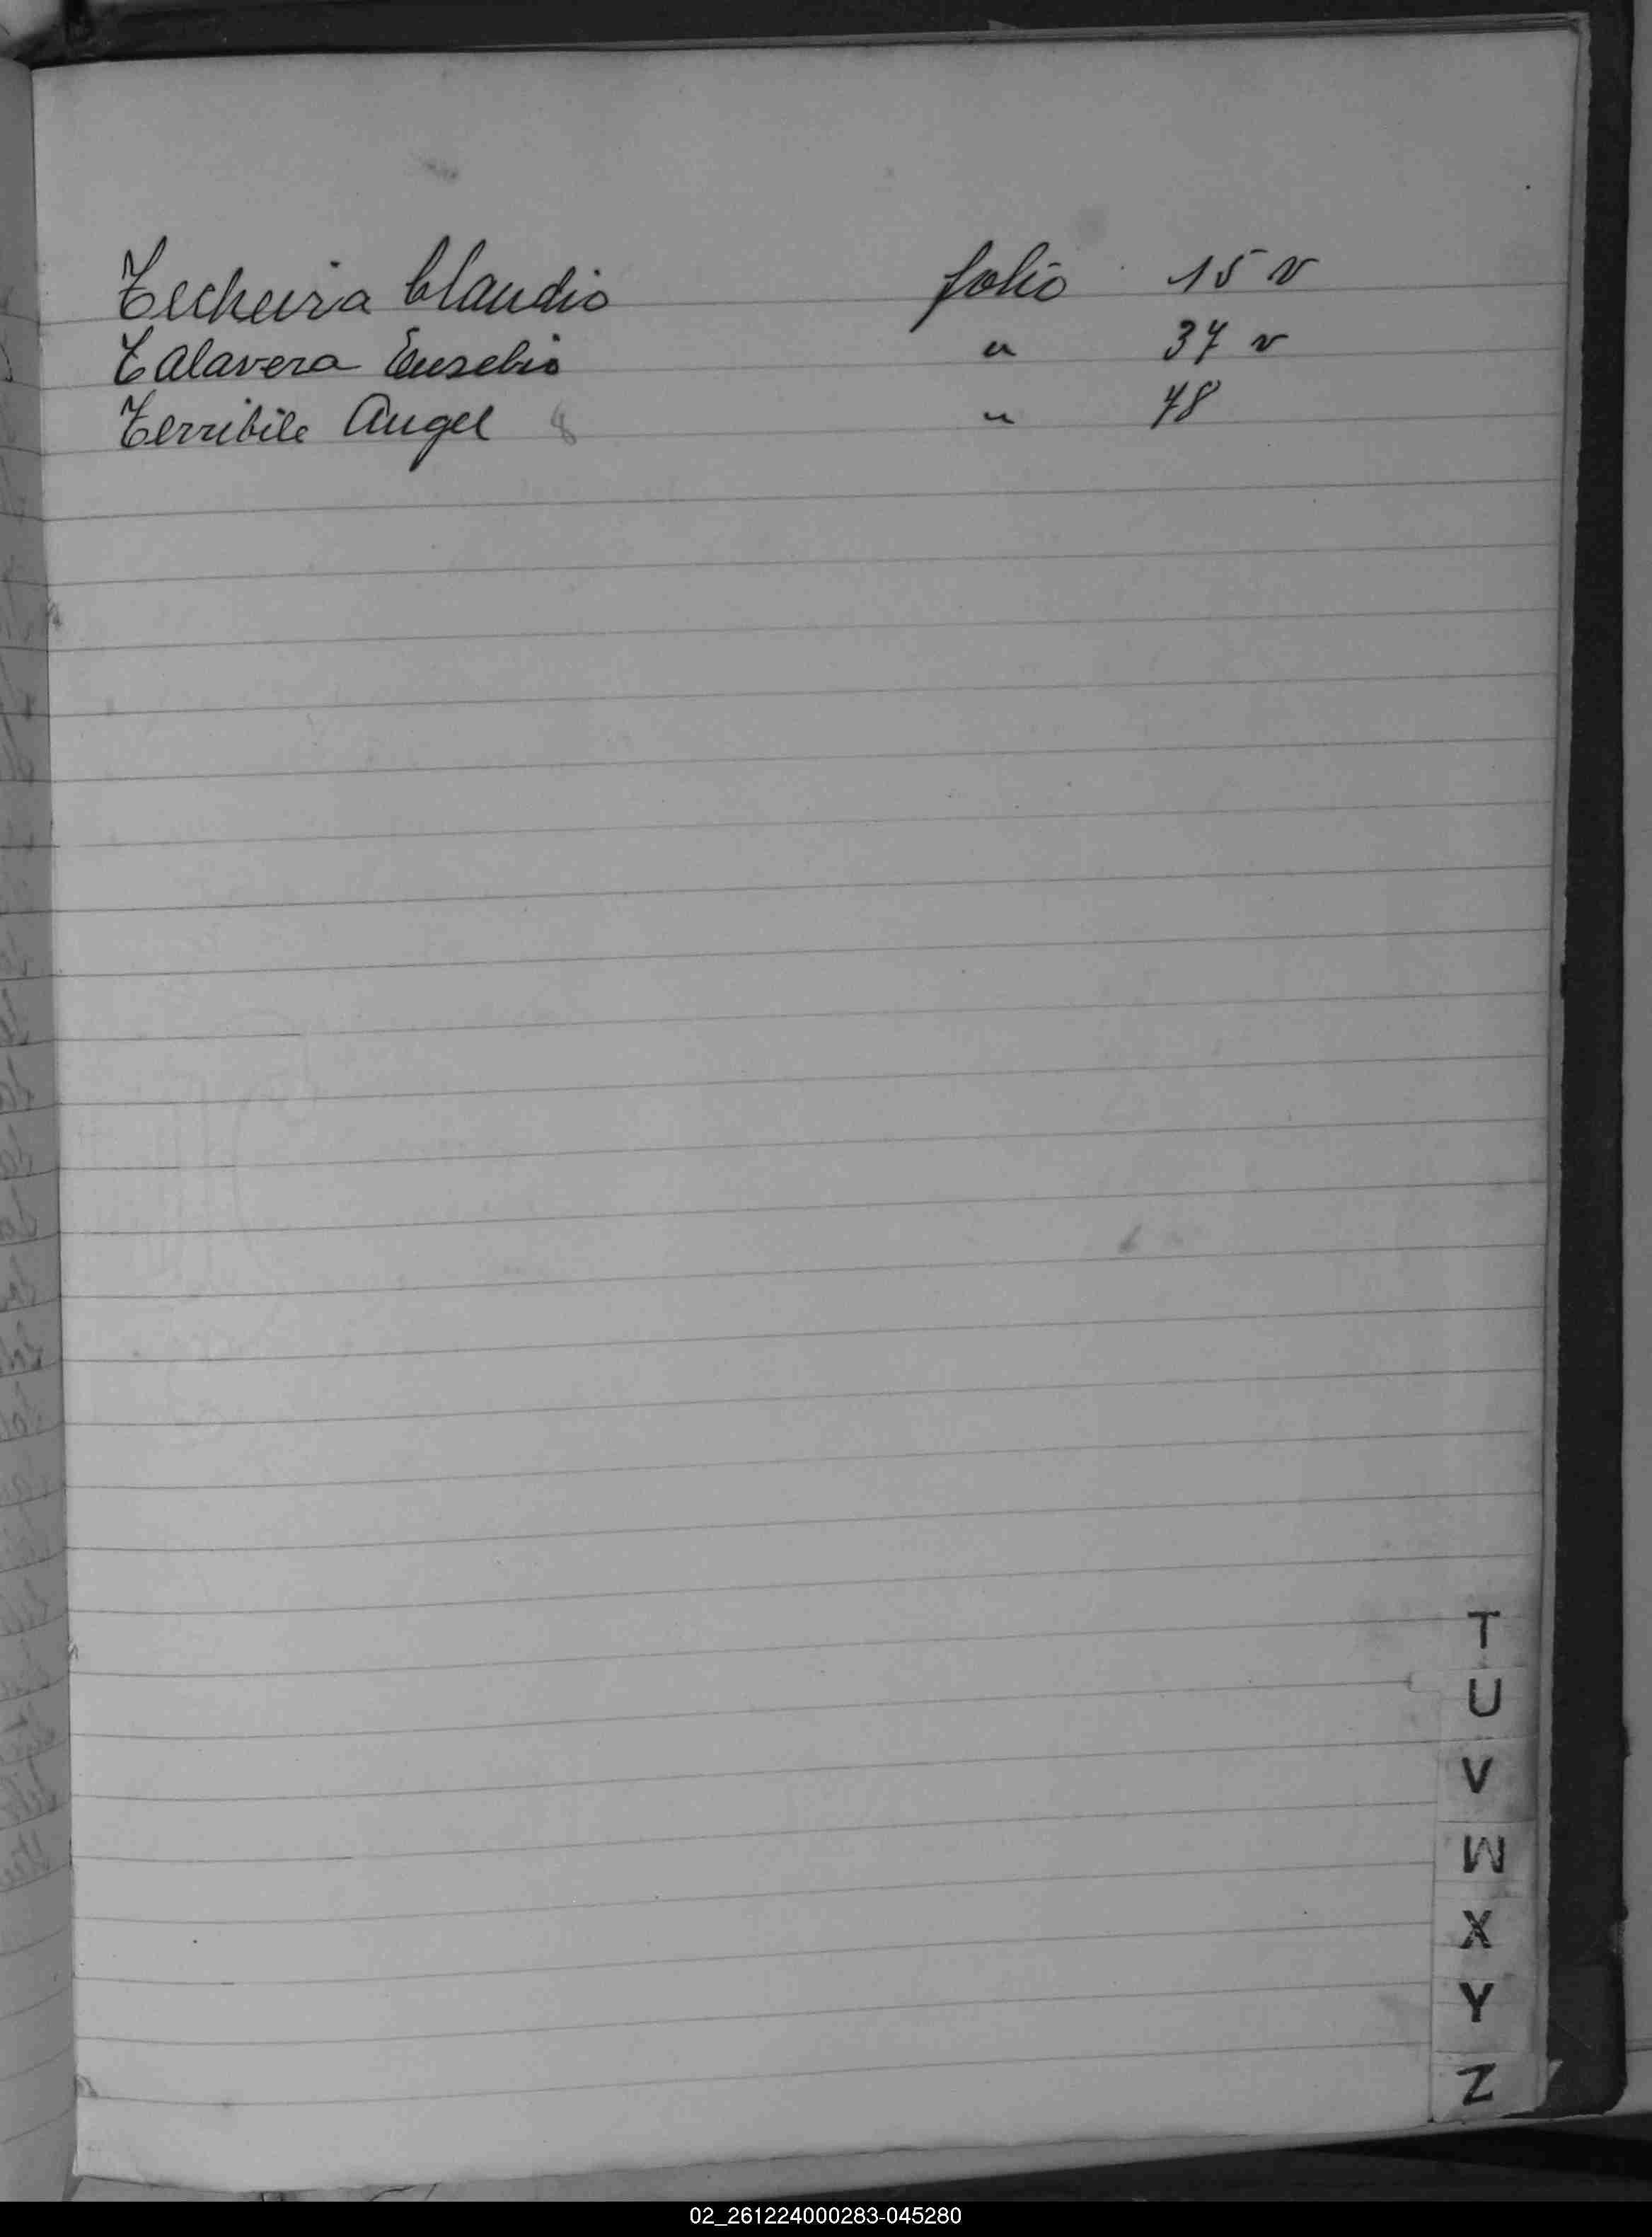 Techeira Claudio folio 15 v
Talavera Eusebio " 37 v
Terribile Angel 8 " 48
T
U
V
W
X
Y
Z
02_261224000283-045280